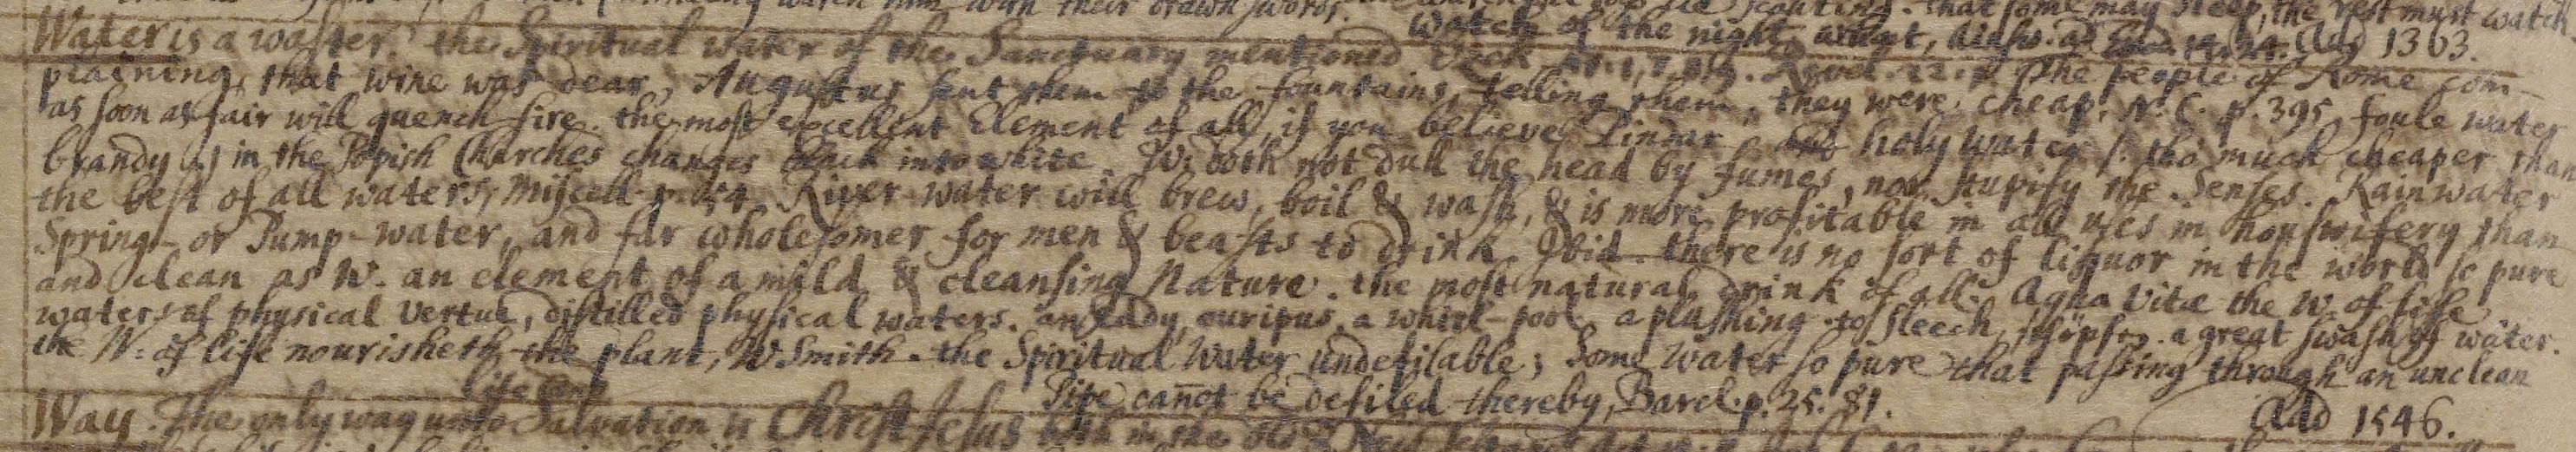 watch him with their drawn swords. that some may sleep, the rest must watch.
watch of the night, Add 1303.
Water is a waster. the Spiritual water of the Sanctuary mentioned Ezek. 47. Revel. 22. The people of Rome com-
plaining, that wine was dear, Augustus sent them to the fountains, telling them, they were cheap, N. C. p. 395. foule water
as soon as fair will quench fire. the most excellent Element of all, if you believe Pindar holy water (tho' much cheaper than
brandy) in the Popish Churches changes black into white. W. doth not dull the head by fumes, nor stupify the Senses. Rainwater
the best of all waters, Miscell. p. 54. River-water will brew, boil & wash, & is more profitable in all uses in houswifery than
Spring- or Pump-water, and far wholesomer for men & beasts to drink. Ibid. there is no sort of liquor in the world so pure
and clean as W. an element of a mild & cleansing Nature. the most natural drink of all. Aqua Vitæ the W. of life.
waters of physical Vertue, distilled physical waters. euripus, a whirl-pool. a plashing. a great swash of water.
the W. of life nourisheth the plant, W. Smith. the Spiritual Water undefilable; Some Water so pure that passing through an unclean
Pipe cannot be defiled thereby, Barcl. p. 25. 81. Add 1546.
Way. The only way unto Salvation is Christ Jesus both in the